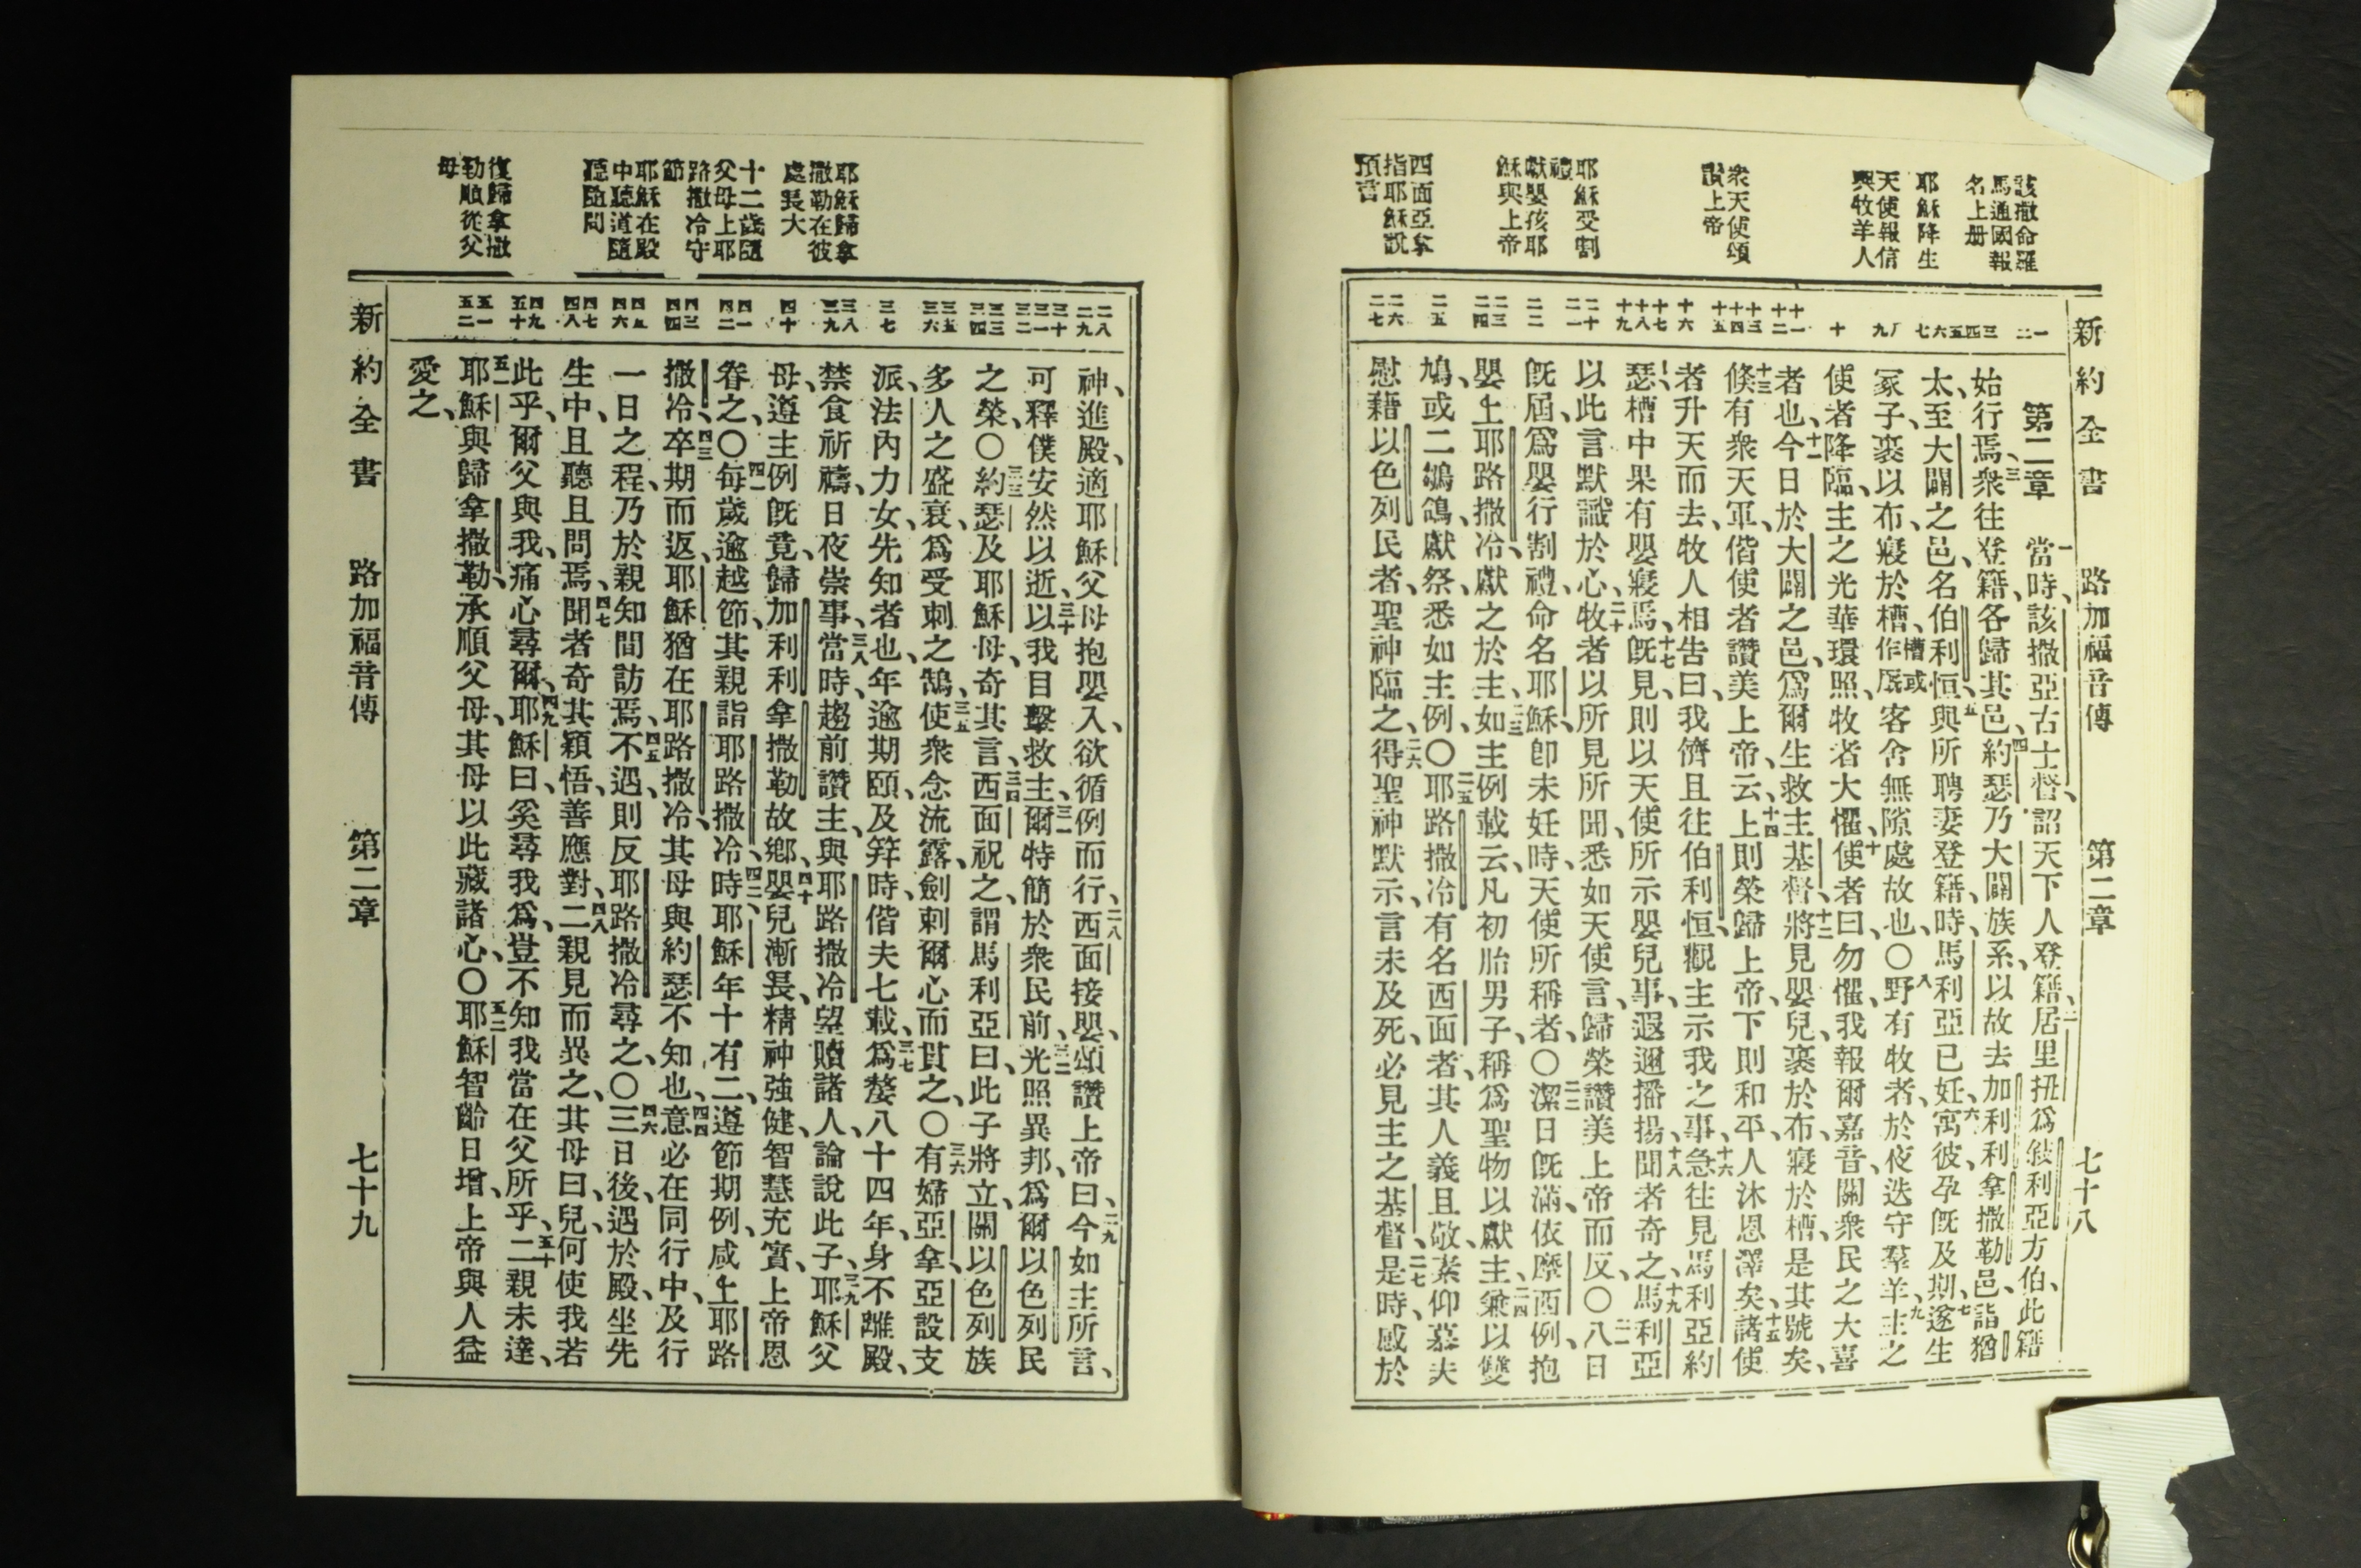 新約全書 路加福音傳 第二章 七十八
該撒命羅
馬通國報
名上册
耶穌降生
天使報信
與牧羊人
衆天使頌
讚上帝
耶穌受割
禮
獻嬰孩耶
穌與上帝
四面亞拿
指耶穌說
預言
第二章 一當時、該撒亞古士督、詔天下人登籍、二居里扭爲敍利亞方伯、此籍
始行焉、三衆往登籍、各歸其邑、四約瑟乃大闢族系、以故去加利利拿撒勒邑、詣猶
太、至大闢之邑、名伯利恒、五與所聘妻登籍、時、馬利亞已妊、六寓彼、孕既及期、七遂生
冢子、裹以布、寢於槽、槽或作厩客舍無隙處故也、〇八野有牧者、於夜迭守羣羊、九主之
使者降臨、主之光華環照、牧者大懼、十使者曰、勿懼、我報爾嘉音、關衆民之大喜
者也、十一今日於大闢之邑、爲爾生救主基督、十二將見嬰兒、裹於布、寢於槽、是其號矣、
十三倏有衆天軍、偕使者讚美上帝、云、十四上則榮歸上帝、下則和平、人沐恩澤矣、十五諸使
者升天而去、牧人相告曰、我儕且往伯利恒、觀主示我之事、十六急往見馬利亞約
瑟、槽中果有嬰寢焉、十七既見、則以天使所示嬰兒事、遐邇播揚、十八聞者奇之、十九馬利亞
以此言默識於心、二十牧者以所見所聞、悉如天使言、歸榮讚美上帝而反、〇二一八日
既屆、爲嬰行割禮、命名耶穌、卽未妊時、天使所稱者、〇二二潔日既滿、依摩西例、抱
嬰上耶路撒冷、獻之於主、二三如主例載云、凡初胎男子、稱爲聖物以獻主、二四兼以雙
鳩、或二鶵鴿、獻祭、悉如主例、〇二五耶路撒冷有名西面者、其人義且敬、素仰慕夫
慰藉以色列民者、聖神臨之、二六得聖神默示、言未及死、必見主之基督、二七是時、感於
耶穌歸拿
撒勒在彼
處長大
十二歲隨
父母上耶
路撒冷守
節
耶穌在殿
中聽道隨
聽隨問
復歸拿撒
勒順從父
母
神、進殿、適耶穌父母抱嬰入、欲循例而行、二八西面接嬰、頌讚上帝曰、二九今如主所言、
可釋僕安然以逝、三十以我目擊救主、三一爾特簡於衆民前、三二光照異邦、爲爾以色列民
之榮、〇三三約瑟及耶穌母、奇其言、三四西面祝之、謂馬利亞曰、此子將立、關以色列族
多人之盛衰、爲受刺之鵠、三五使衆念流露、劍刺爾心而貫之、〇三六有婦亞拿、亞設支
派、法內力女、先知者也、年逾期頤、及筓時、偕夫七載、三七爲嫠八十四年、身不離殿、
禁食祈禱、日夜崇事、三八當時、趨前讚主、與耶路撒冷望贖諸人、論說此子、三九耶穌父
母、遵主例既竟、歸加利利拿撒勒故鄉、四十嬰兒漸長、精神強健、智慧充實、上帝恩
眷之、〇四一每歲逾越節、其親詣耶路撒冷、四二時耶穌年十有二、遵節期例、咸上耶路
撒冷、四三卒期而返、耶穌猶在耶路撒冷、其母與約瑟不知也、四四意必在同行中、及行
一日之程、乃於親知間訪焉、四五不遇、則反耶路撒冷尋之、〇四六三日後、遇於殿、坐先
生中、且聽且問焉、四七聞者奇其穎悟、善應對、四八二親見而異之、其母曰、兒、何使我若
此乎、爾父與我、痛心尋爾、四九耶穌曰、奚尋我爲、豈不知我當在父所乎、五十二親未達、
五一耶穌與歸拿撒勒、承順父母、其母以此藏諸心、〇五二耶穌智齡日增、上帝與人益
愛之、
新約全書 路加福音傳 第二章 七十九